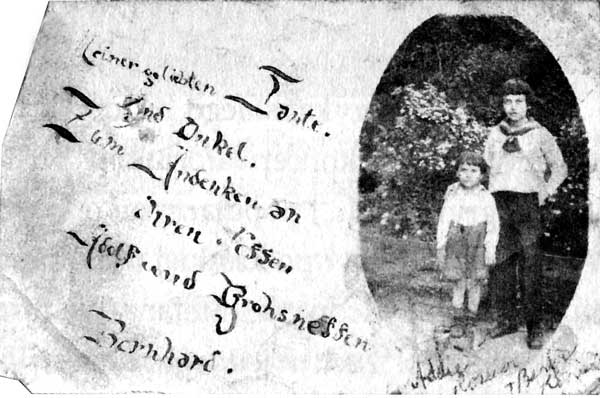 Seiner geliebten Tante.
Und Onkel.
Zum Andenken an
ihren Neffen
Adolf und Grohsneffen
Bernhard.